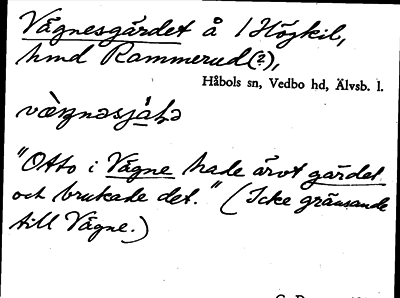 Vägnesgärdet å 1 Högkil,
hmd Rammerud(?),
Håbols sn, Vedbo hd, Älvsb. l.
"Otto i Vägne hade ärvt gärdet
och brukade det." (Icke gränsande
till Vägne.)